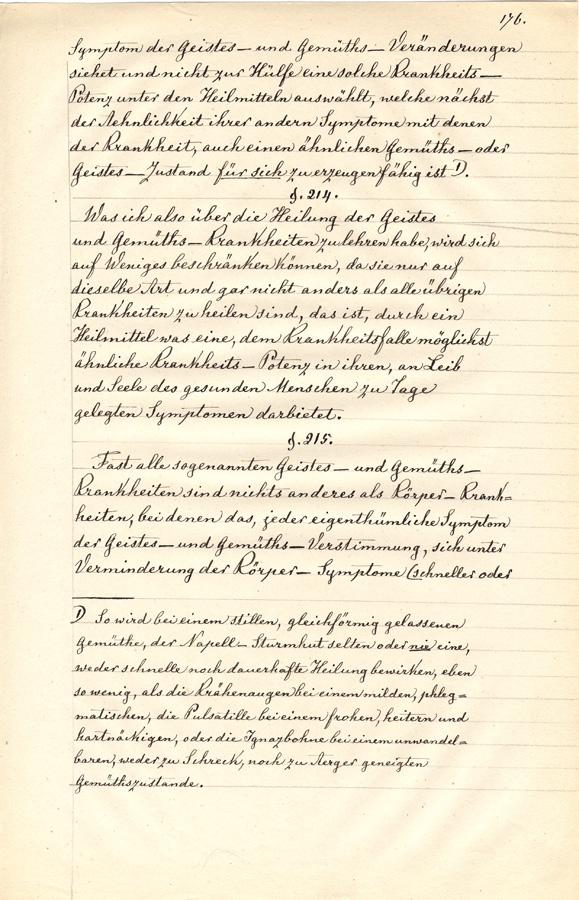 176.
Symptom der Geistes- und Gemüths- Veränderungen
siehet und nicht zur Hülfe eine solche Krankheits-
Potenz unter den Heilmitteln auswählt, welche nächst
der Aehnlichkeit ihrer andern Symptome mit denen
der Krankheit, auch einen ähnlichen Gemüths- oder
Geistes- Zustand für sich zu erzeugen fähig ist 1).
§. 214.
Was ich also über die Heilung der Geistes
und Gemüths- Krankheiten zu lehren habe, wird sich
auf Weniges beschränken können, da sie nur auf
dieselbe Art und gar nicht anders als alle übrigen
Krankheiten zu heilen sind, das ist, durch ein
Heilmittel was eine, dem Krankheitsfalle möglichst
ähnliche Krankheits- Potenz in ihren, an Leib
und Seele des gesunden Menschen zu Tage
gelegten Symptomen darbietet.
§. 215.
Fast alle sogenannten Geistes- und Gemüths-
Krankheiten sind nichts anderes als Körper- Krank=
heiten, bei denen das, jeder eigenthümliche Symptom
der Geistes- und Gemüths- Verstimmung, sich unter
Verminderung der Körper- Symptome (schneller oder
1) So wird bei einem stillen, gleichförmig gelassenen
Gemüthe, der Napell- Sturmhut selten oder nie eine,
weder schnelle noch dauerhafte Heilung bewirken, eben
so wenig, als die Krähenaugen bei einem milden, phleg=
matischen, die Pulsatille bei einem frohen, heitern und
hartnäckigen, oder die Ignazbohne bei einem unwandel=
baren, weder zu Schreck, noch zu Aerger geneigten
Gemüthszustande.